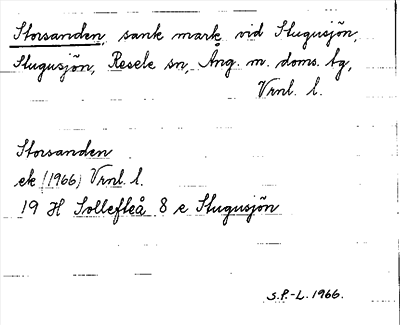 Storsanden, sank mark vid Stugusjön,
Stugusjön, Resele sn, Ång. m. doms. tg,
Vrnl. l.
Storsanden
ek (1966) Vrnl. l.
19 H Sollefteå 8 e Stugusjön
S.P.-L. 1966.